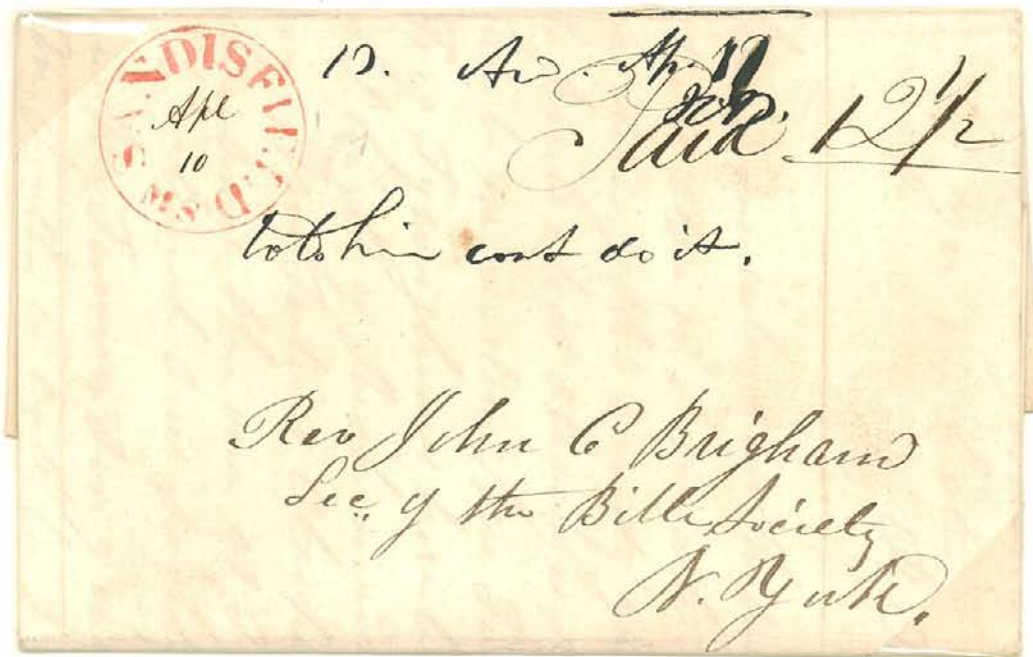 SANDISFIELD Ms
Apl
10
Paid 12 1/2
do it.
Rev John C Brigham
Sec. of the Bible Society
N. York.